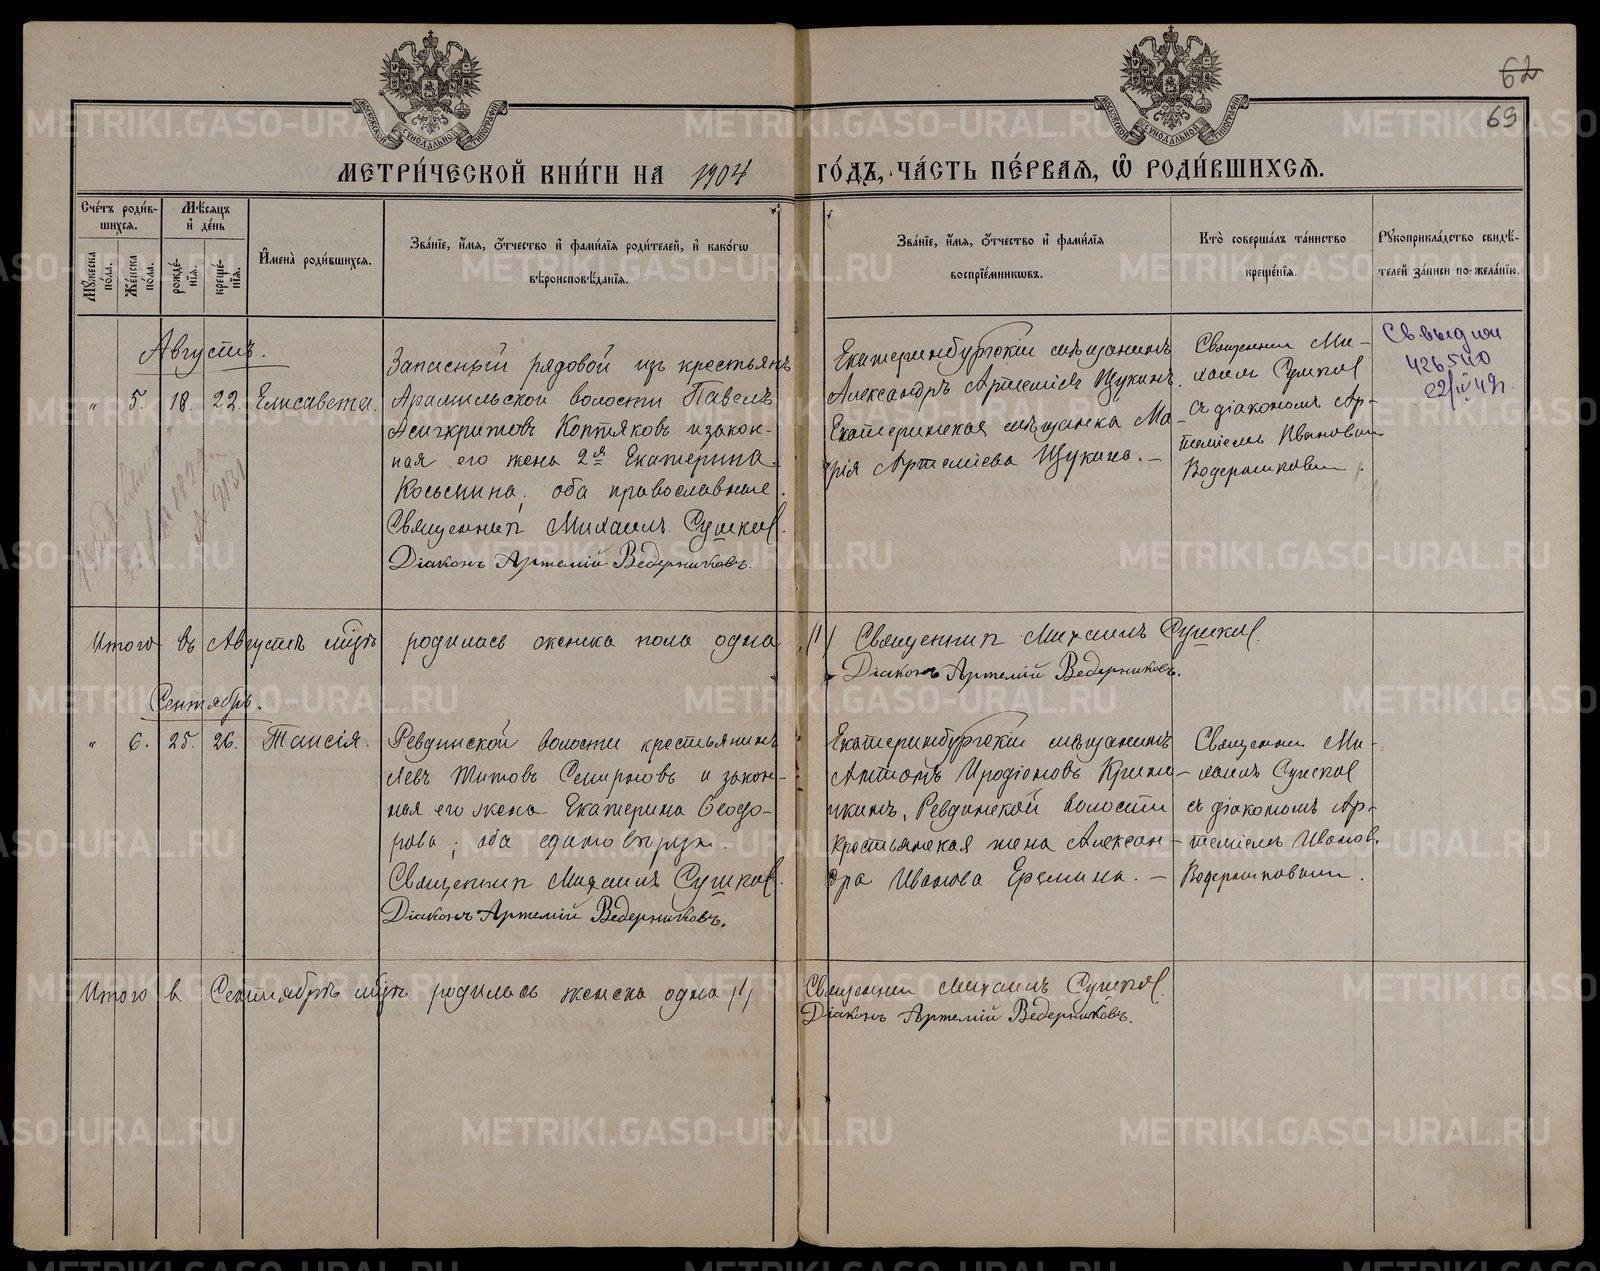 62
69
МЕТРИ́ЧЕСКОЙ КНИ́ГИ НА 1904 ГО́ДЪ, ЧА́СТЬ ПЕ́РВАЯ, Ѽ РОДИ́ВШИХСЯ.
Сче́тъ роди́в-
шихся.
Мѣ́сяцъ
и҆ де́нь
Мꙋ́жеска по́ла.
Же́нска по́ла.
рожде́-нїѧ.
креще́-нїѧ.
И҆мена̀ роди́вшихся.
Зва́нїе, и҆́мѧ, ѻ҆́тчество и҆ фами́лїѧ роди́телей, и҆ како́гѡ
вѣроисповѣ́данїѧ.
Зва́нїе, и҆́мѧ, ѻ҆́тчество и҆ фами́лїѧ
воспрїе́мникѡвъ.
Кто̀ соверша́лъ та́инство
креще́нїѧ.
Рꙋкоприкла́дство свидѣ́-
телей за́писи по жела́нїю.
Августъ.
" 5. 18. 22. Елисавета.
Записный рядовой изъ крестьянъ
Арамильской волости Павелъ
Асигкритовъ Коптяковъ и закон-
ная его жена 2я Екатерина
Косьмина; оба православные.
Священникъ Михаилъ Сушковъ.
Діаконъ Артемій Ведерниковъ.
Екатеринбургскій мѣщанинъ
Александръ Артеміев Щукинъ.
Екатеринская мѣщанка Ма-
рія Артеміева Щукина. —
Священник Ми-
хаилъ Сушков
съ діакономъ Ар-
теміемъ Ивановым
Ведерниковым.
Св. выд.
426540
22/IV 49г.
Итого въ Августѣ м-цѣ родилась женска пола одна /1/ Священник Михаилъ Сушков.
Діаконъ Артемій Ведерниковъ.
Сентябрь.
" 6. 25. 26. Таисія.
Ревдинской волости крестьянинъ
Левъ Титовъ Смирновъ и закон-
ная его жена Екатерина Ѳеодо-
рова; оба единовѣрцы.
Священник Михаилъ Сушков.
Діаконъ Артемій Ведерниковъ.
Екатеринбургскій мѣщанинъ
Иродіоновъ
Ревдинской волости
крестьянская жена Алексан-
дра Иванова Еремина. —
Священник Ми-
хаилъ Сушков
съ діакономъ Ар-
теміемъ Иванов.
Ведерниковым.
Итого в Сентябрѣ м-цѣ родилась женска одна /1/ Священник Михаилъ Сушков.
Діаконъ Артемій Ведерниковъ.
METRIKI.GASO-URAL.RU